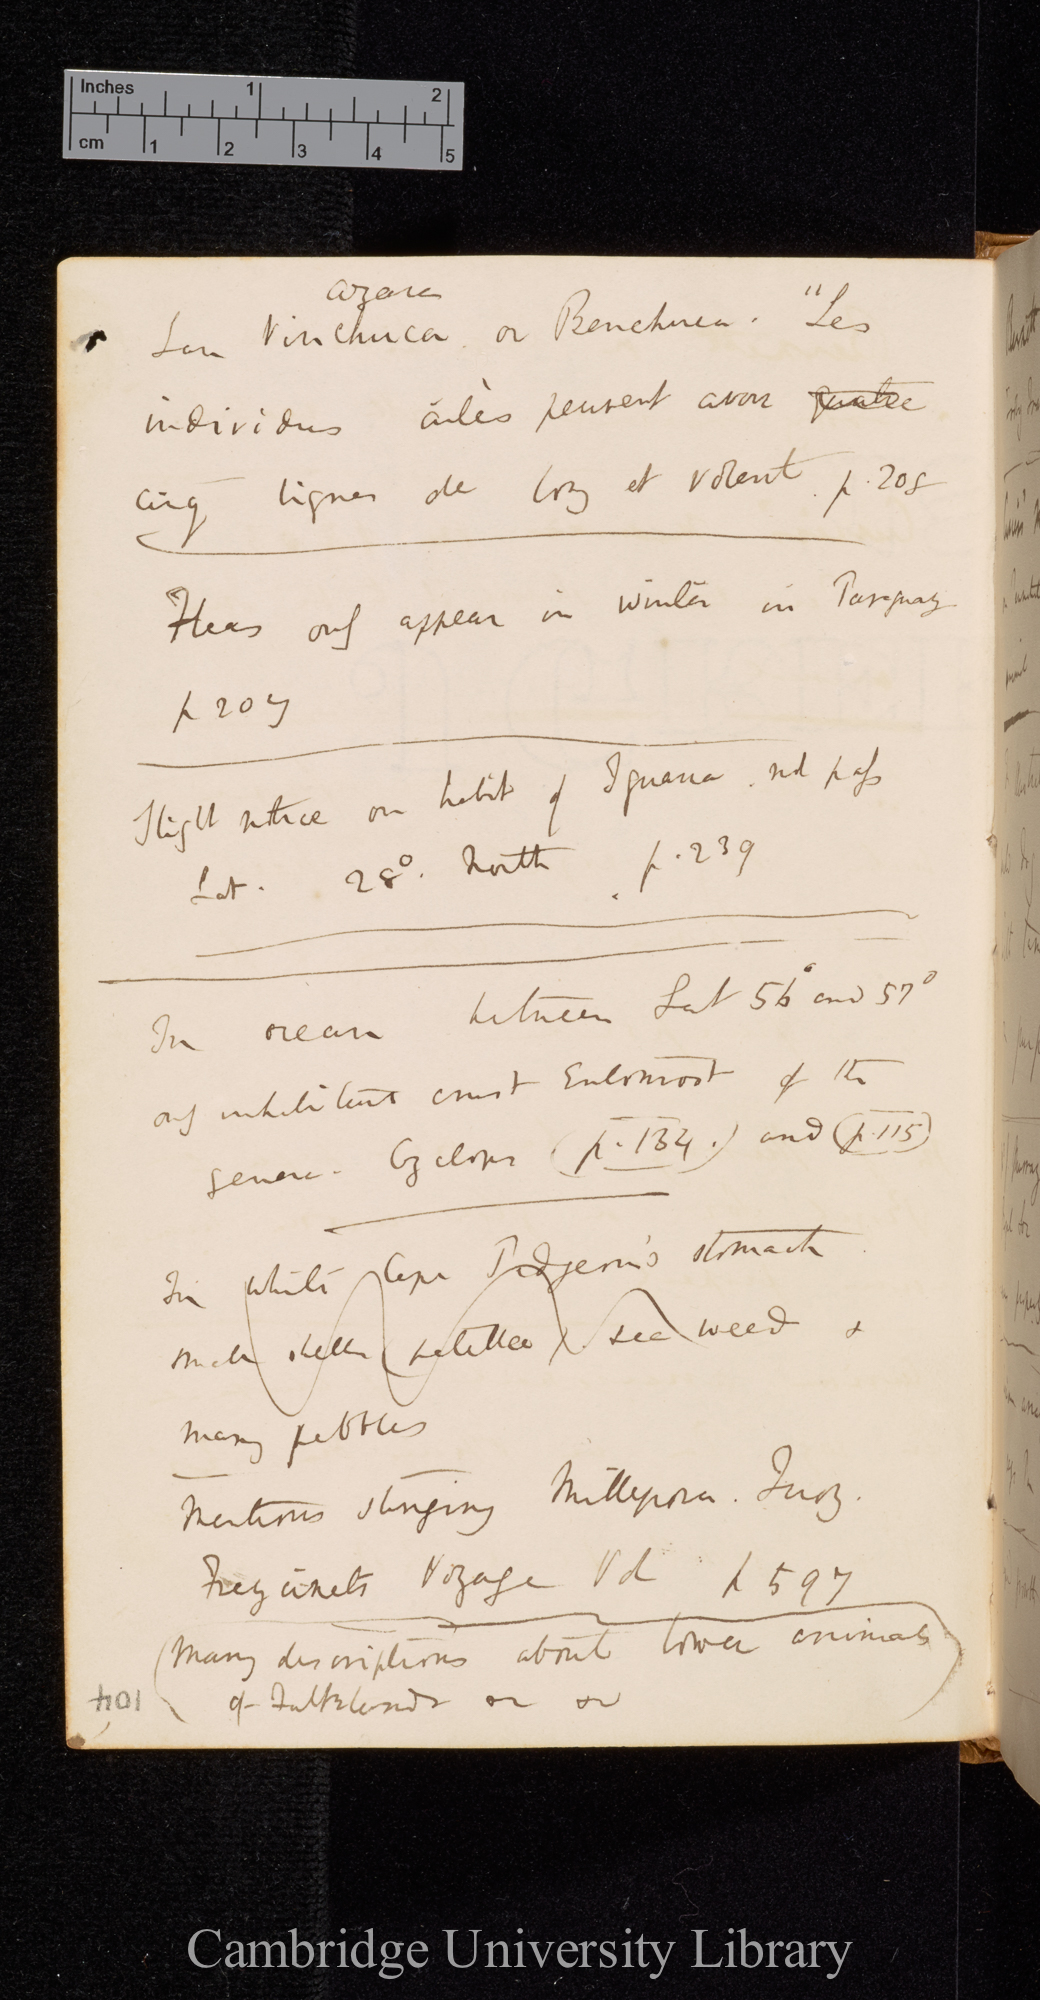 Inches 1 2
cm 1 2 3 4 5
Azara
San Vinchuca or Benchuca. "Les
individus ailès peuvent avoir quatre
cinq lignes de long et volent. p. 208
Fleas only appear in winter in Paraguay
p 209
Slight notice on habit of Iguana. not pass
Lat. 28°. North p. 239
In ocean between Lat 56° and 57°
only inhabitant crust Entomost of the
genera. Cyclops (p. 134.) and (p. 115)
In white Cape Pidgeon's stomach
small shells (patellæ) sea weed &
many pebbles
Mentions stinging Millepora. Quoy.
Freycinets Voyage Vol p 597
(Many descriptions about lower animals
of Falklands &c &c
104
Cambridge University Library